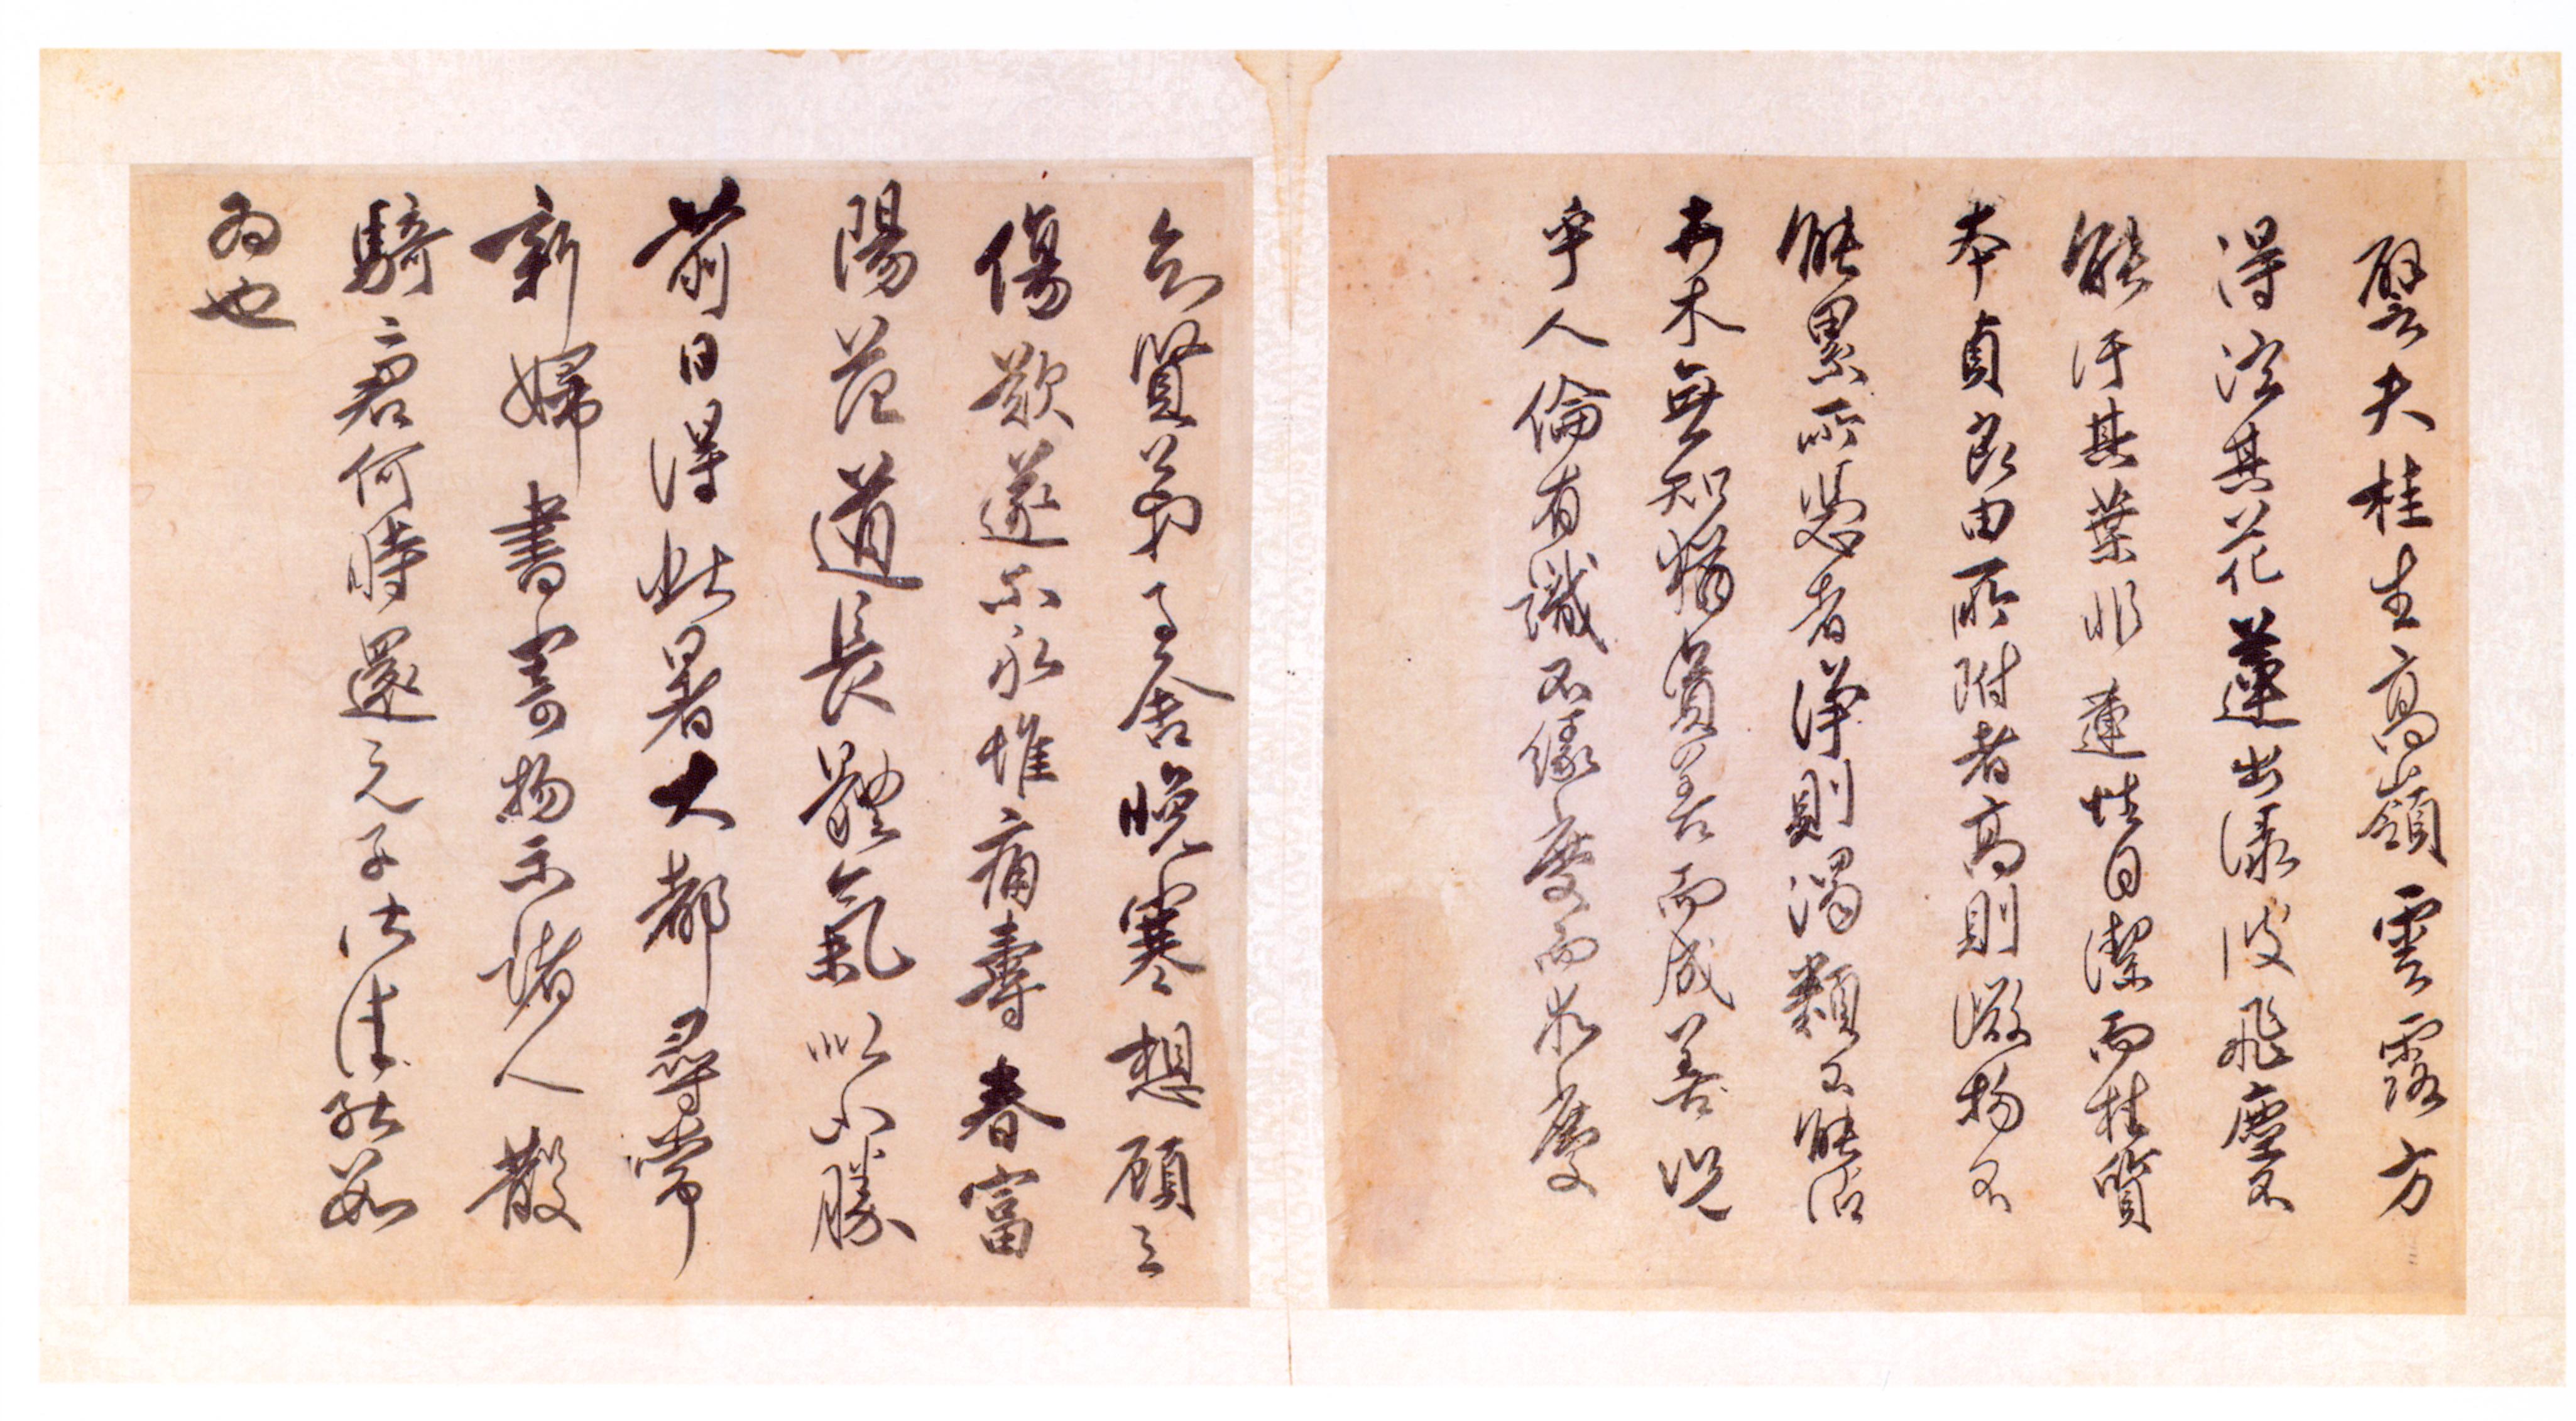 譬夫桂生高嶺雲露方
得泫其花蓮出渌波飛塵不
能汙其葉非蓮性自潔而桂質
本貞良由所附者高則微物不
能累所憑者淨則濁類不能沾
卉木無知猶資善而成善況
乎人倫有識不緣慶而求慶
賢弟子舍晚寒想顧之
傷歎遂不永惟痛壽春富
陽范道長體氣以小勝
前日得此暑大都尋常
新婦書寄物示諸人散
騎二君何時還元子
為也